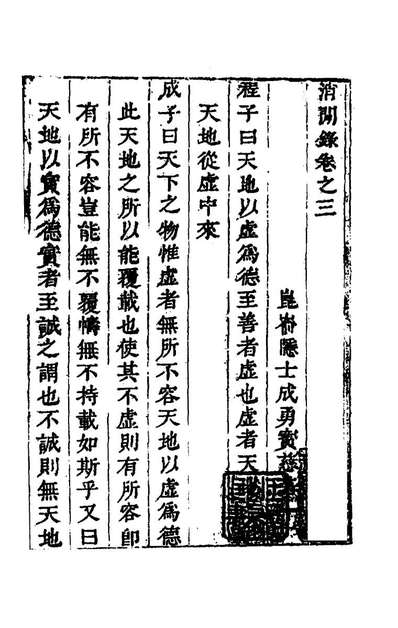 消閒錄卷之三
崑崙隱士成勇實慈
程子曰天地以虛爲德至善者虛也虛者天
天地從虛中來
成子曰天下之物惟虛者無所不容天地以虛爲德
此天地之所以能覆載也使其不虛則有所容卽
有所不容豈能無不覆幬無不持載如斯乎又曰
天地以實爲德實者至誠之謂也不誠則無天地